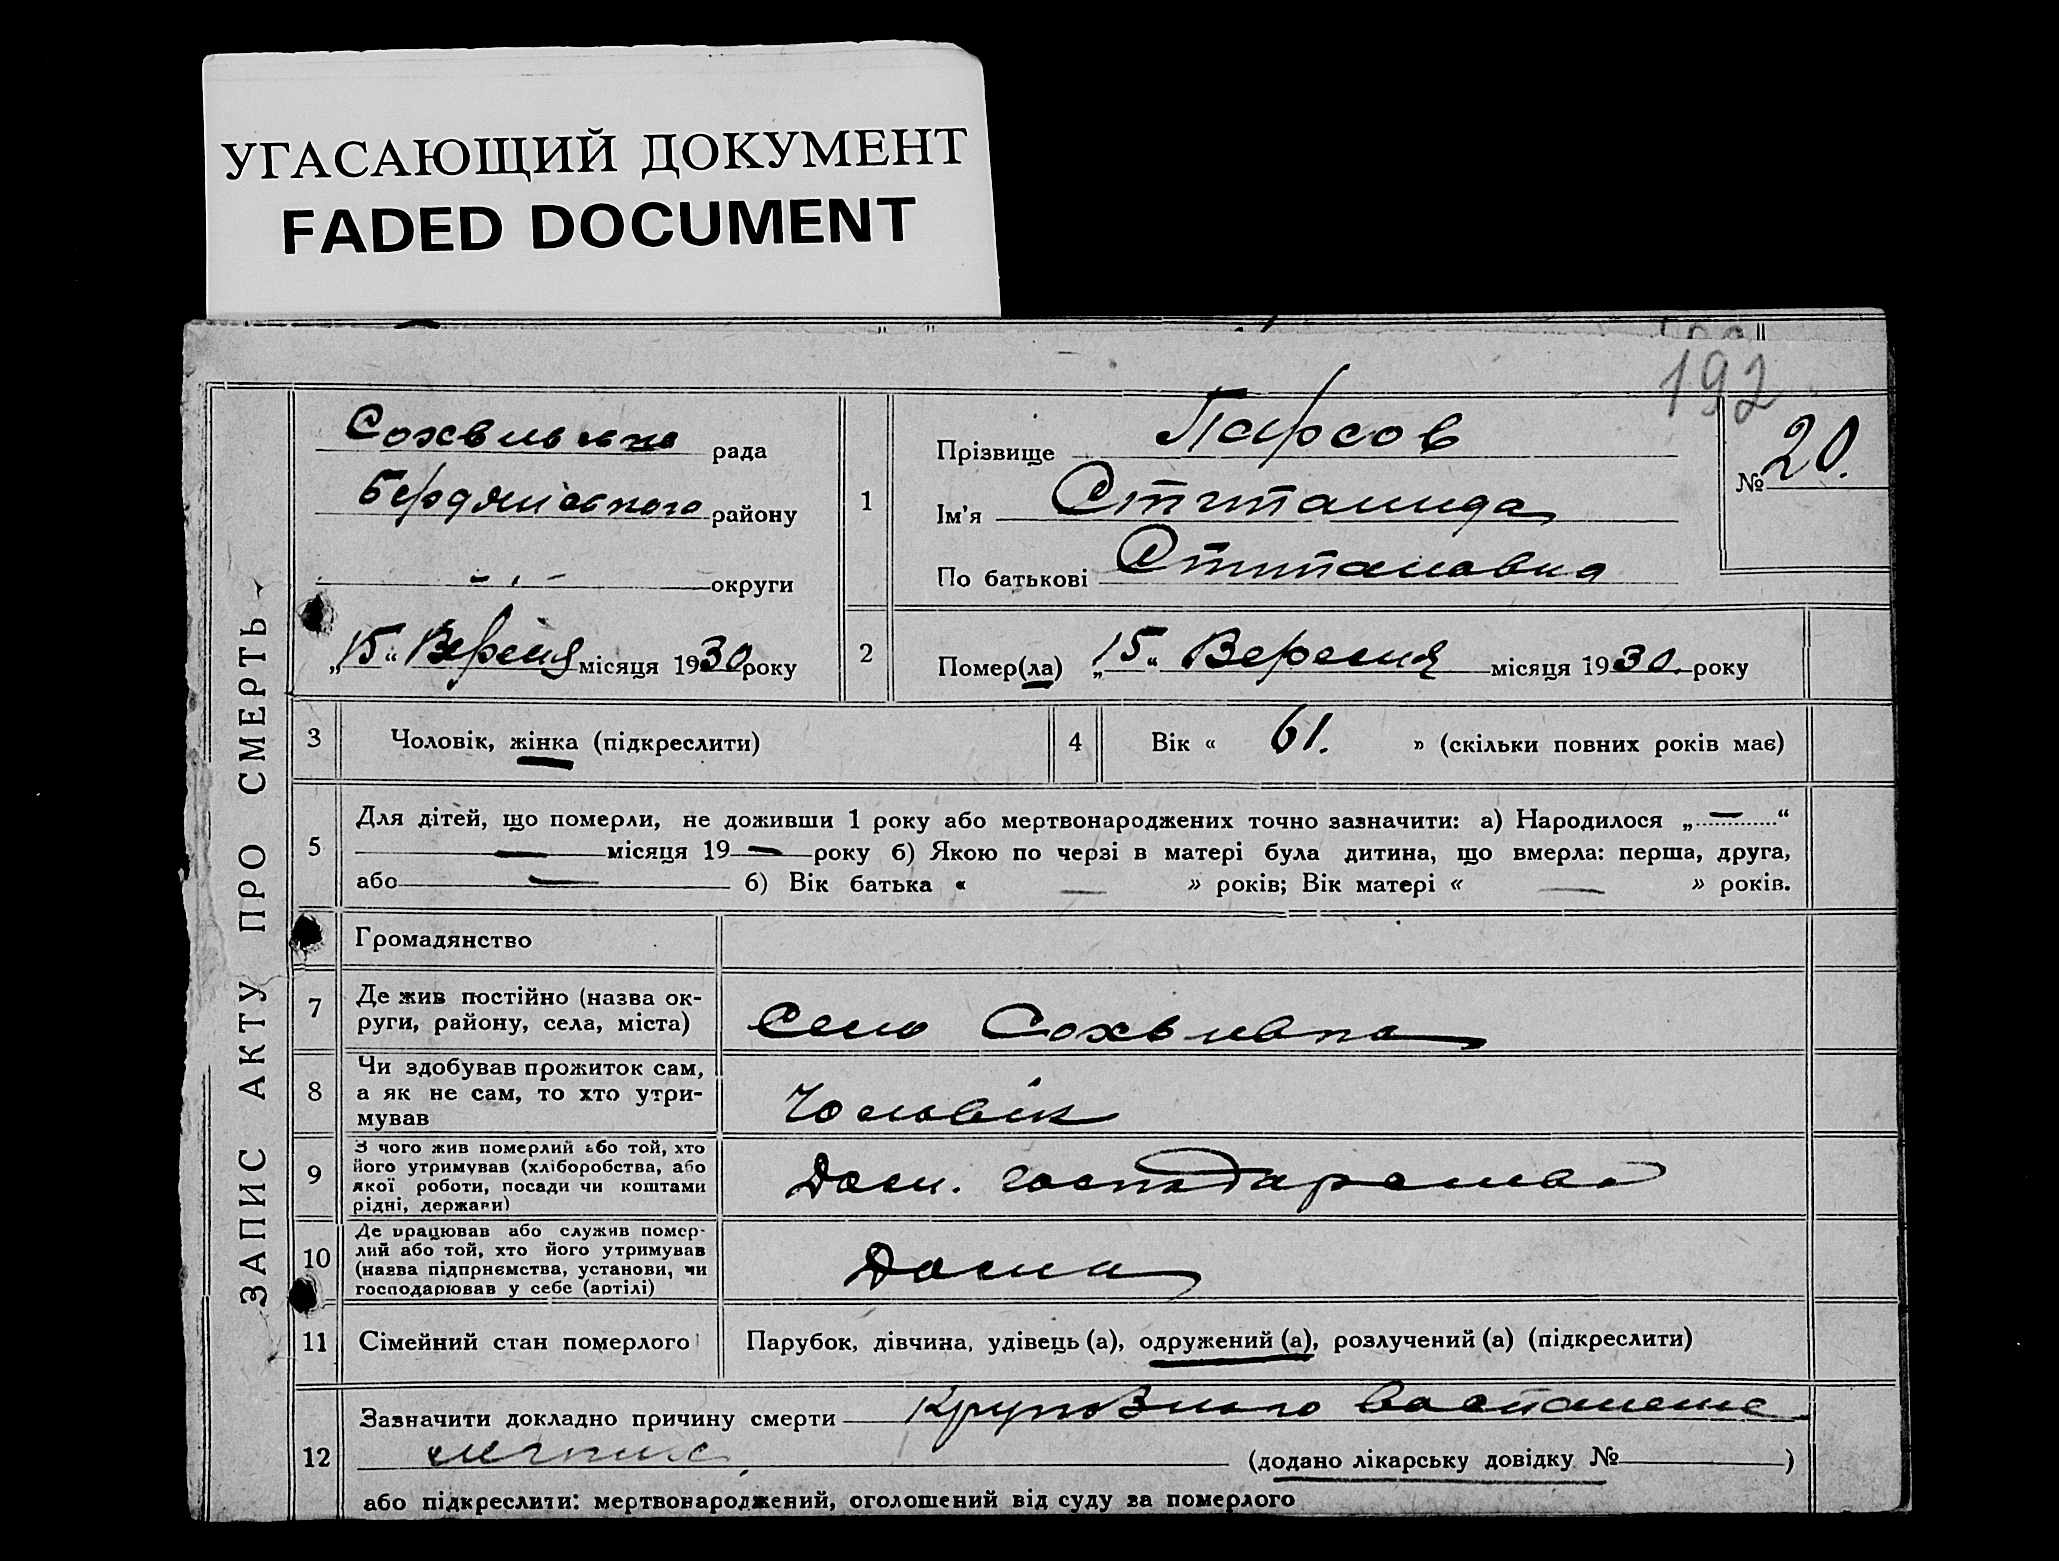 УГАСАЮЩИЙ ДОКУМЕНТ
FADED DOCUMENT
192
ЗАПИС АКТУ ПРО СМЕРТЬ
рада
Бердянського району
округи
„15“ Вересня місяця 1930 року
1
Прізвище Парсов
Ім'я
По батькові
№ 20.
2
Помер(ла) „15“ Вересня місяця 1930 року
3
Чоловік, жінка (підкреслити)
4
Вік « 61. » (скільки повних років має)
5
Для дітей, що померли, не доживши 1 року або мертвонароджених точно зазначити: а) Народилося „—“
— місяця 19 — року б) Якою по черзі в матері була дитина, що вмерла: перша, друга,
або — б) Вік батька « — » років; Вік матері « — » років.
Громадянство
7
Де жив постійно (назва ок-
руги, району, села, міста)
Село
8
Чи здобував прожиток сам,
а як не сам, то хто утри-
мував
Чоловік
9
З чого жив померлий або той, хто
його утримував (хліборобства, або
якої роботи, посади чи коштами
рідні, держави)
Дом. господарства
10
Де працював або служив помер-
лий або той, хто його утримував
(назва підприємства, установи, чи
господарював у себе (артілі)
Дома
11
Сімейний стан померлого
Парубок, дівчина, удівець (а), одружений (а), розлучений (а) (підкреслити)
12
Зазначити докладно причину смерти
(додано лікарську довідку № )
або підкреслити: мертвонароджений, оголошений від суду за померлого